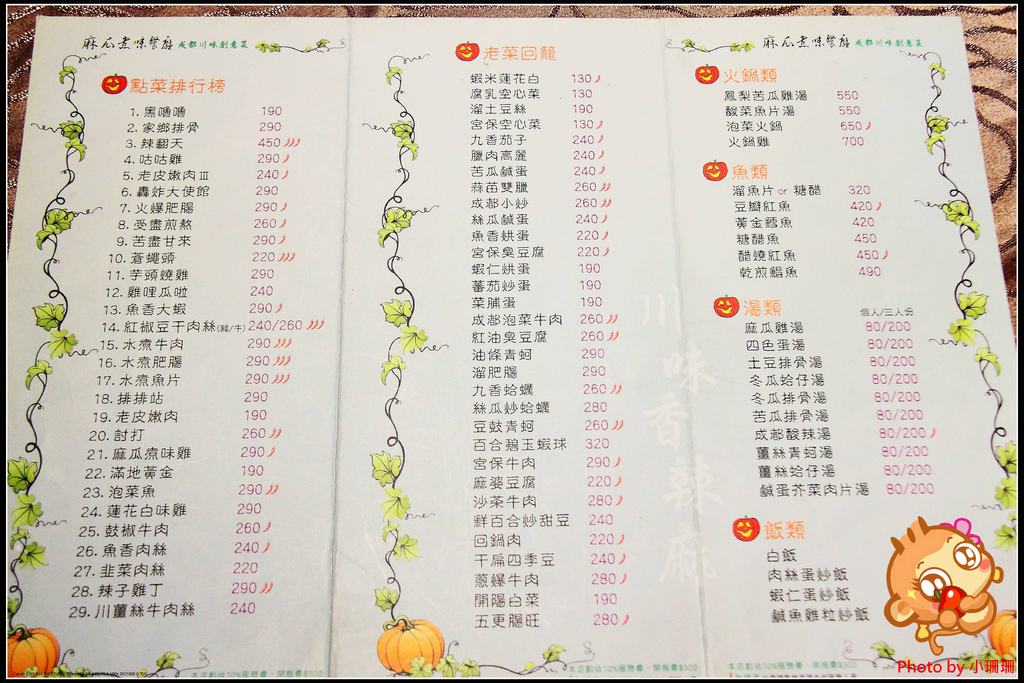 麻瓜煮味餐廳 成都川味創意菜
點菜排行榜
1. 黑嚕嚕 190
2. 家鄉排骨 290
3. 辣翻天 450
4. 咕咕雞 290
5. 老皮嫩肉III 240
6. 轟炸大使館 290
7. 火爆肥腸 290
8. 受盡煎熬 260
9. 苦盡甘來 290
10. 蒼蠅頭 220
11. 芋頭燒雞 290
12. 雞哩瓜啦 240
13. 魚香大蝦 290
14. 紅椒豆干肉絲(豬/牛) 240/260
15. 水煮牛肉 290
16. 水煮肥腸 290
17. 水煮魚片 290
18. 排排站 290
19. 老皮嫩肉 190
20. 討打 260
21. 麻瓜煮味雞 290
22. 滿地黃金 190
23. 泡菜魚 290
24. 蓮花白味雞 290
25. 鼓椒牛肉 260
26. 魚香肉絲 240
27. 韭菜肉絲 220
28. 辣子雞丁 290
29. 川薑絲牛肉絲 240
老菜回籠
蝦米蓮花白 130
腐乳空心菜 130
溜土豆絲 190
宮保空心菜 130
九香茄子 240
臘肉高麗 240
苦瓜鹹蛋 240
蒜苗雙臘 260
成都小炒 260
絲瓜鹹蛋 240
魚香烘蛋 220
宮保臭豆腐 220
蝦仁烘蛋 190
蕃茄炒蛋 190
菜脯蛋 190
成都泡菜牛肉 260
紅油臭豆腐 260
油條青蚵 290
溜肥腸 290
九香蛤蠣 260
絲瓜炒蛤蠣 280
豆鼓青蚵 260
百合碧玉蝦球 320
宮保牛肉 290
麻婆豆腐 220
沙茶牛肉 280
鮮百合炒甜豆 240
回鍋肉 220
干扁四季豆 240
蔥爆牛肉 280
開陽白菜 190
五更腸旺 280
本店酌收10%服務費、開瓶費$300
麻瓜煮味餐廳 成都川味創意菜
火鍋類
鳳梨苦瓜雞湯 550
酸菜魚片湯 550
泡菜火鍋 650
火鍋雞 700
魚類
溜魚片 or 糖醋 320
豆瓣紅魚 420
黃金鱈魚 420
糖醋魚 450
醋燒紅魚 450
乾煎鯧魚 490
湯類 個人/三人份
麻瓜雞湯 80/200
四色蛋湯 80/200
土豆排骨湯 80/200
冬瓜蛤仔湯 80/200
冬瓜排骨湯 80/200
苦瓜排骨湯 80/200
成都酸辣湯 80/200
薑絲青蚵湯 80/200
薑絲蛤仔湯 80/200
鹹蛋芥菜肉片湯 80/200
飯類
白飯
肉絲蛋炒飯
蝦仁蛋炒飯
鹹魚雞粒炒飯
本店酌收10%服務費、開瓶費$300
川味香辣麻
Photo by 小珊珊